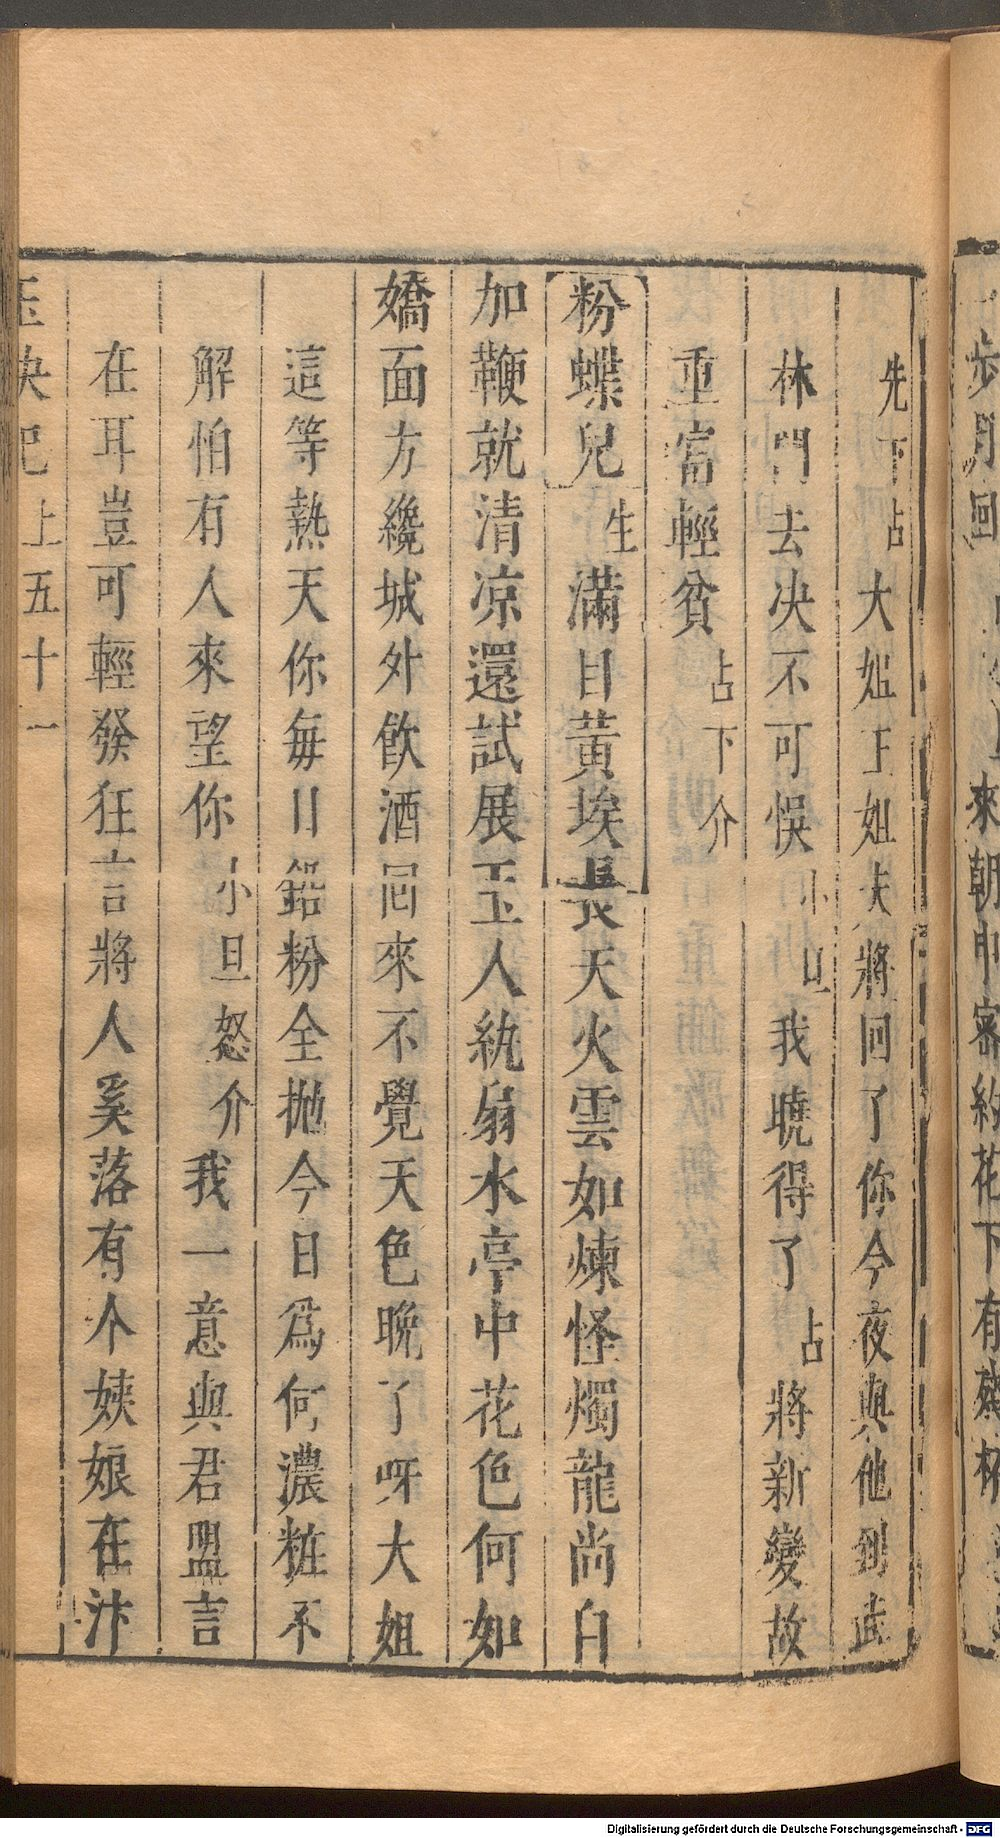 步月回
來朝
審約花下有殘杯
先下占大姐王姐夫將回了你今夜與他到武
林門去决不可悞小旦我曉得了占將新變故
重富輕貧占下介
粉蝶兒生滿目黃埃長天火雲如煉怪燭龍尚白
加鞭就清凉還試展玉人紈扇水亭中花色何如
嬌面方纔城外飲酒回來不覺天色晚了呀大姐
這等熱天你每日鉛粉全抛今日爲何濃粧不
解怕有人來望你小旦怒介我一意與君盟言
在耳豈可輕發狂言將人奚落有个姨娘在汴
玉決記上五十一
Digitalisierung gefördert durch die Deutsche Forschungsgemeinschaft - DFG